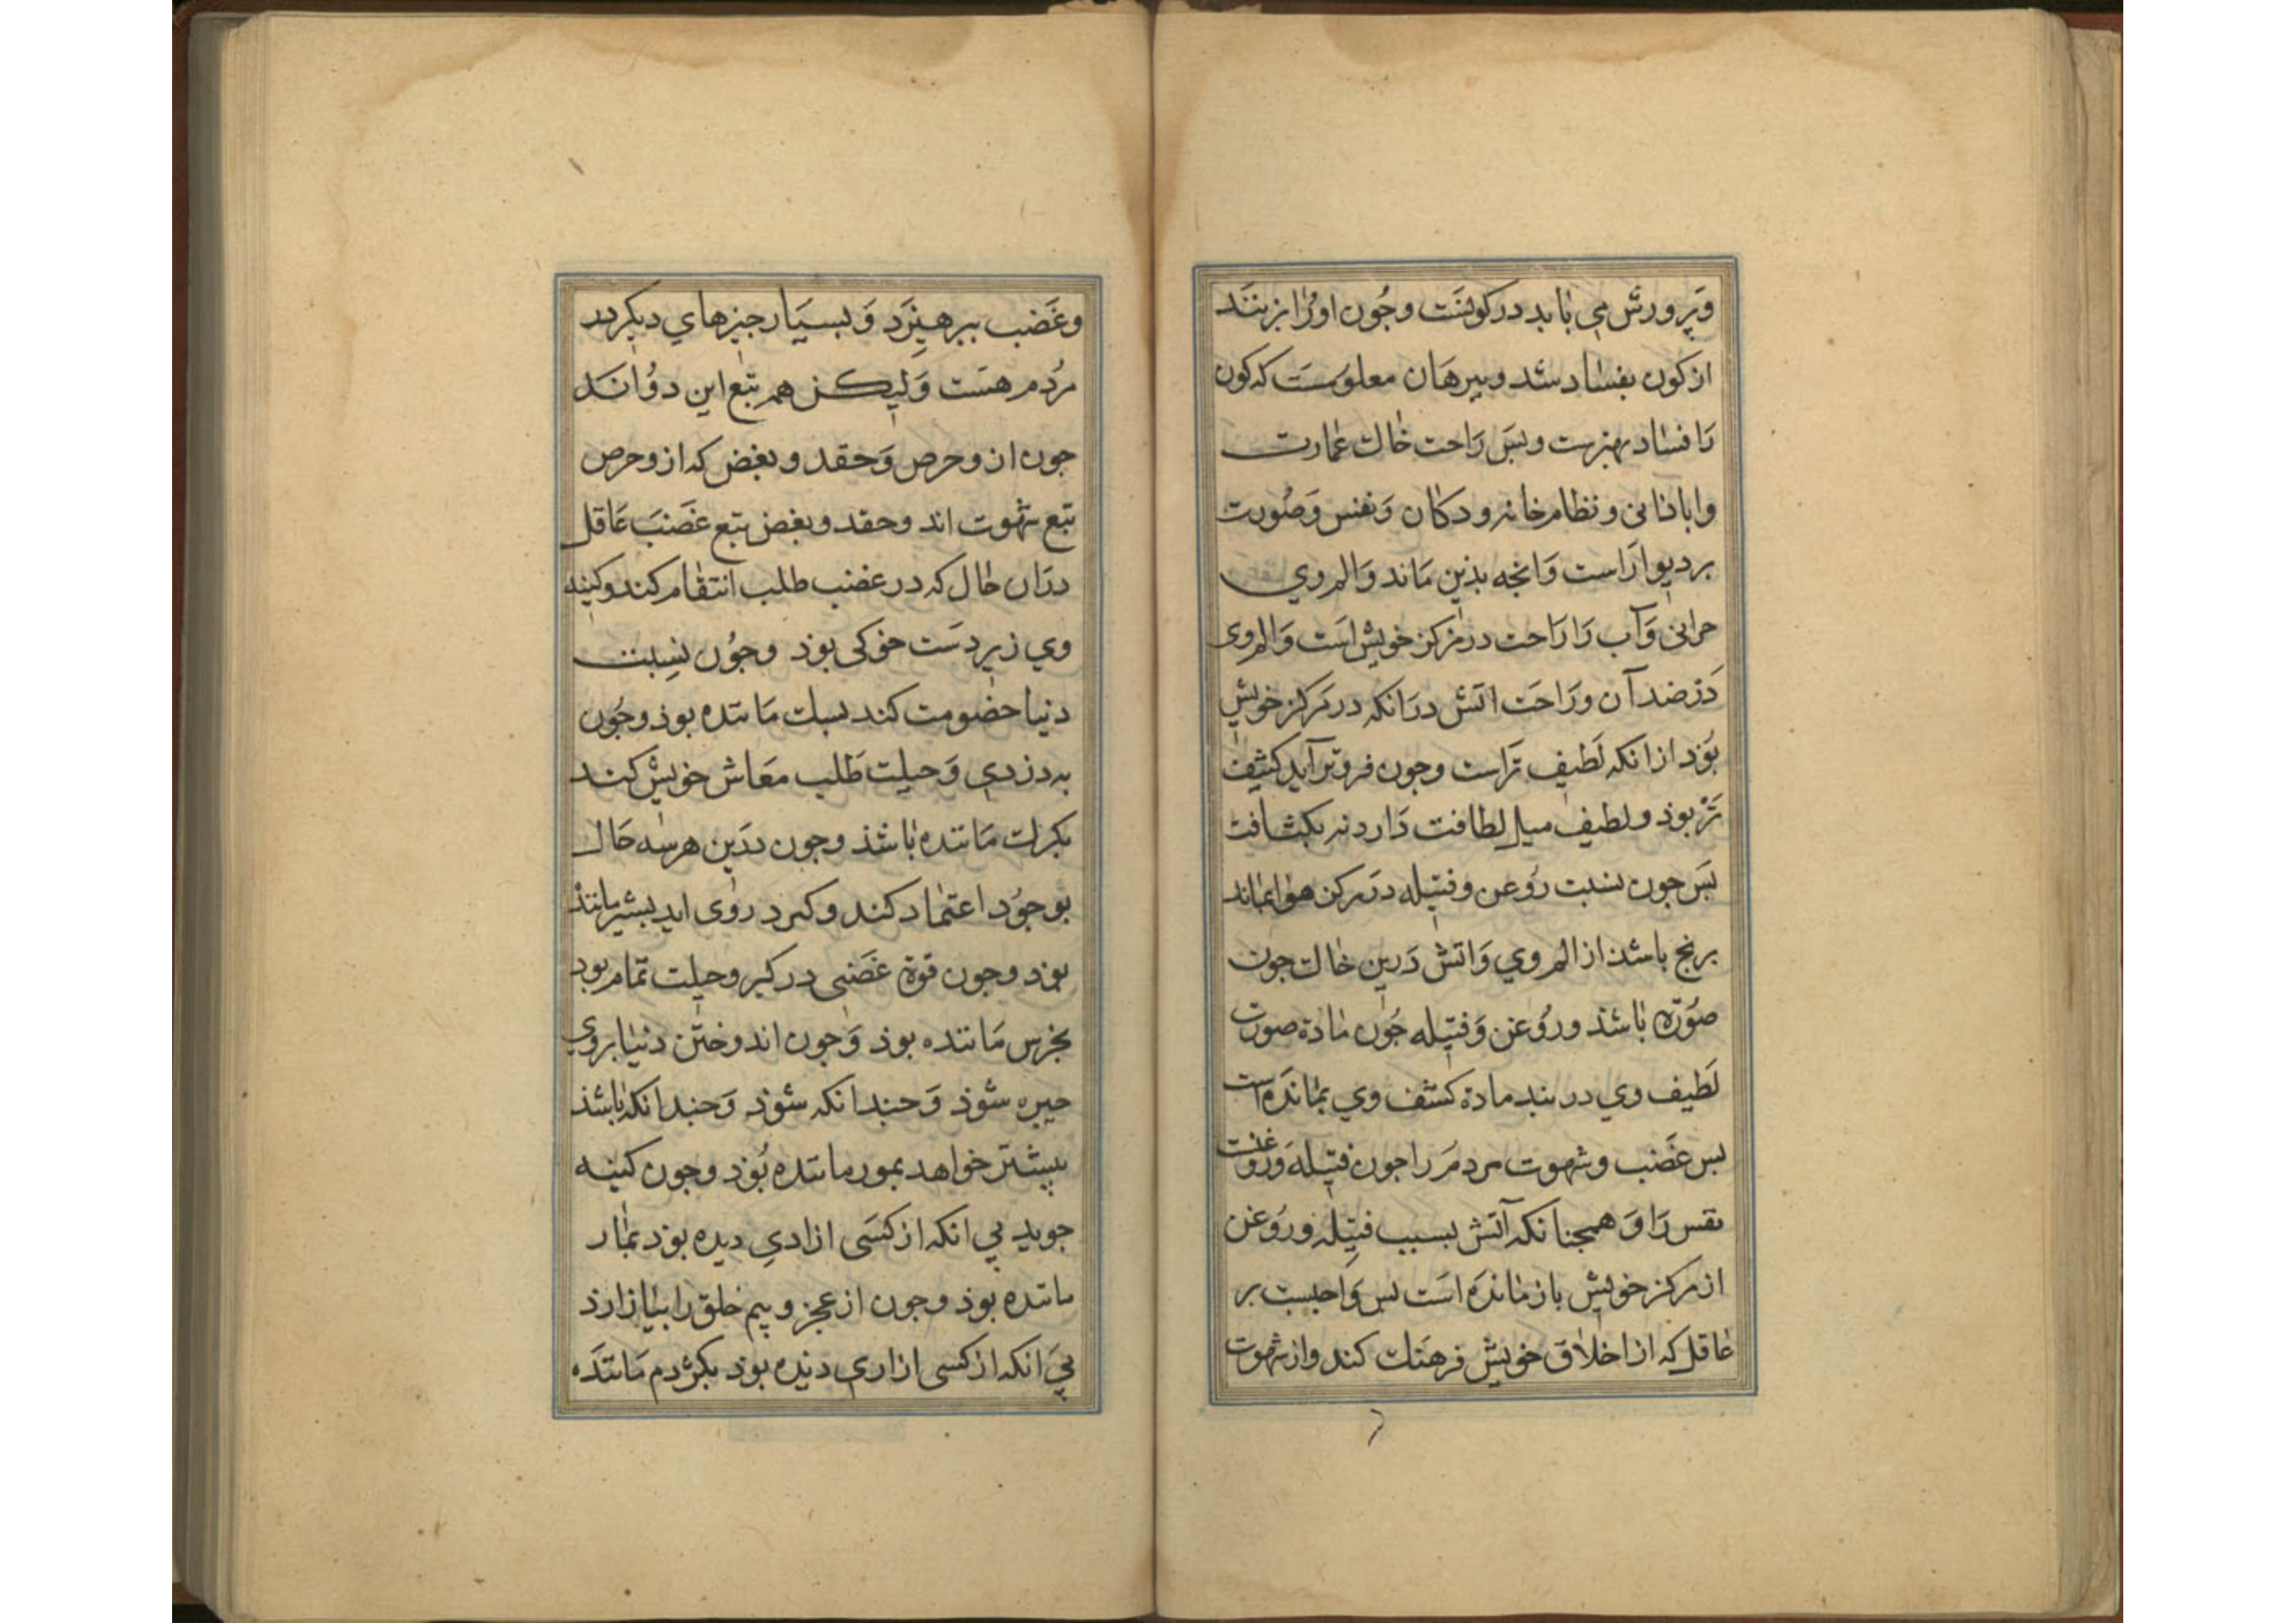 وپرورش می باید در کونت وجون اورا بزنند
از کون بفساد شد وببرهان معلومست که کون
را فساد بهترست وبس راحت خاک عمارت
وابادانی ونظام خانه ودکان ونفس وصورت
بر دیوار است وانچه بذین ماند والم وی
خرابی وآب را راحت در مرکز خویش است والم وی
در ضد آن وراحت اتش در انکه در مرکز خویش
بود از انکه لطیف تر است وجون فروتر آید کثیف
تر بوذ ولطیف میل لطافت دارد نه بکثافت
بس جون بسبت روغن وفتیله در مرکز هوا بماند
برنج باشذ از الم وی واتش درین خاک جون
صورة باشذ وروغن وفتیله جون مادة صورت
لطیف وی در بند مادة کشف وی بمانده است
بس غضب وشهوت مردم را جون فتیله وروغنست
نفس را وهمجنانکه آتش بسبب فتیله وروغن
از مرکز خویش باز مانده است بس واجبست بر
عاقل که از اخلاق خویش فرهنک کند واز شهوت
وغضب ببرهیزد وبسیار جیزهای دیکر در
مردم هست ولیکن هم تبع این دو اند
جون از وحرص وحقد وبغض که از وحرص
تبع شهوت اند وحقد وبغض تبع غضب عاقل
دران حال که در غضب طلب انتقام کند وکینه
وی زیر دست خوکی بوذ وجون نسبت
دنیا خصومت کند بسک مانده بوذ وجون
به دزدی وحیلت طلب معاش خویش کند
بکرک مانده باشذ وجون درین هر سه حال
بوجود اعتماد کند وکبر در وی اید بشیر مانند
بوذ وجون قوة غضبی در کبر وحیلت تمام بود
بخرس مانده بوذ وجون اندوختن دنیا بر وی
جیره شوذ وجندانکه شوذ وجندانکه باشذ
بیشتر خواهد بمور مانده بوذ وجون کینه
جوید بی انکه از کسی ازادی دیده بوذ بمار
مانده بوذ وجون از عجز وبیم خلق را بیازارذ
بی انکه از کسی ازاری دیده بوذ بکژدم مانده